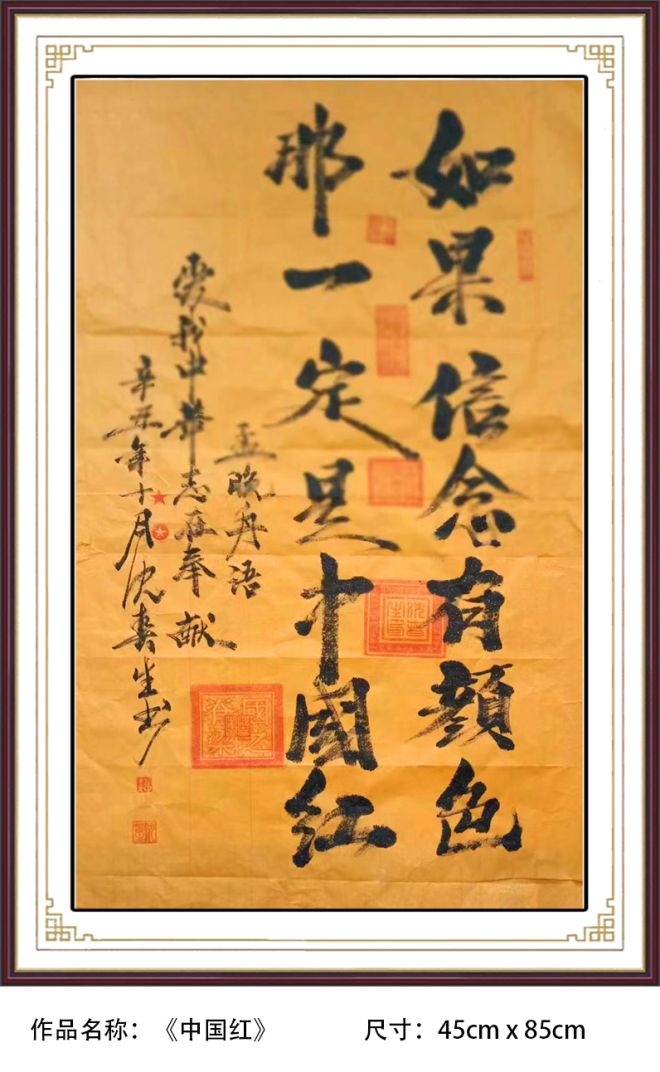 如果信念有顏色
那一定是中國红
孟晚舟语
爱我中华志在奉献
辛丑年十月沈春生书
作品名称：《中国红》
尺寸：45cm x 85cm